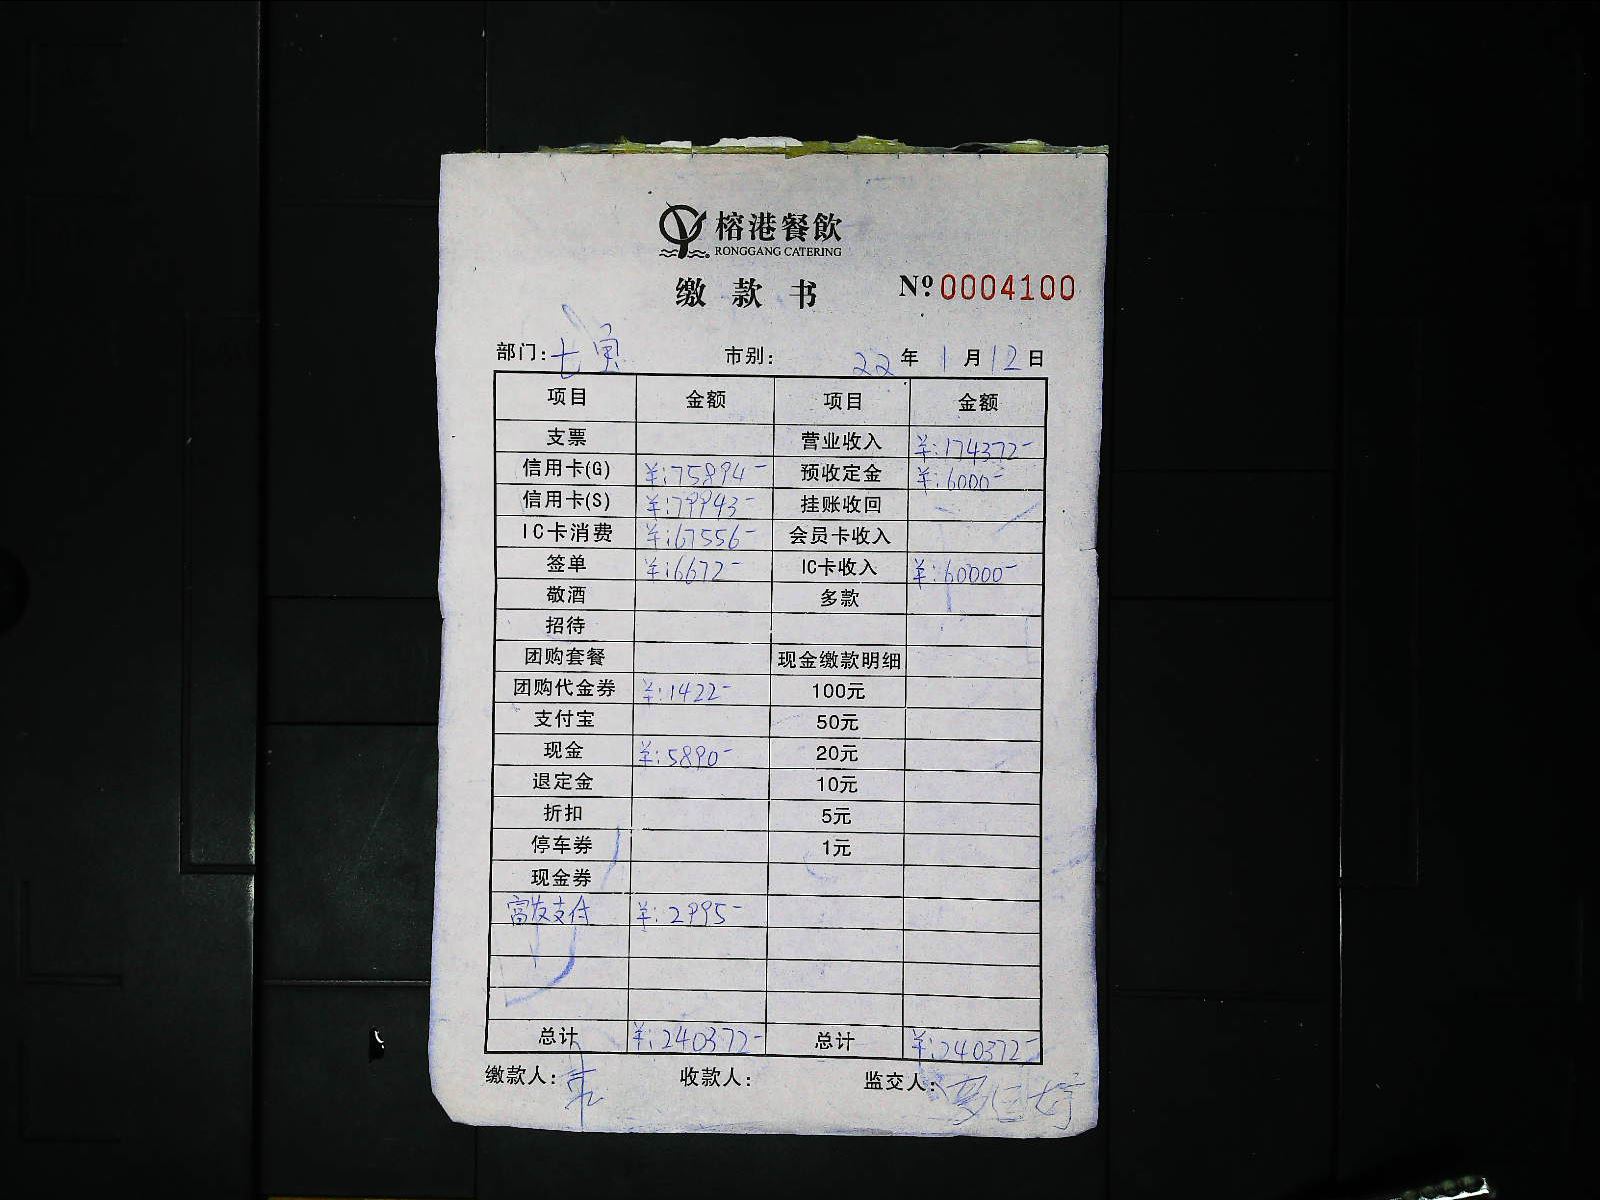 榕港餐飲
RONGGANG CATERING
缴款书 №0004100
部门: 七 市别: 22年1月12日
项目 金额 项目 金额
支票 营业收入 ¥:174372-
信用卡(G) ¥:75894- 预收定金 ¥:6000-
信用卡(S) ¥:79943- 挂账收回
IC卡消费 ¥:67556- 会员卡收入
签单 ¥:6672- IC卡收入 ¥:60000-
敬酒 多款
招待
团购套餐 现金缴款明细
团购代金券 ¥:1422- 100元
支付宝 50元
现金 ¥:5890- 20元
退定金 10元
折扣 5元
停车券 1元
现金券
富友支付 ¥:2995-
总计 ¥:240372- 总计 ¥:240372-
缴款人: 收款人: 监交人: